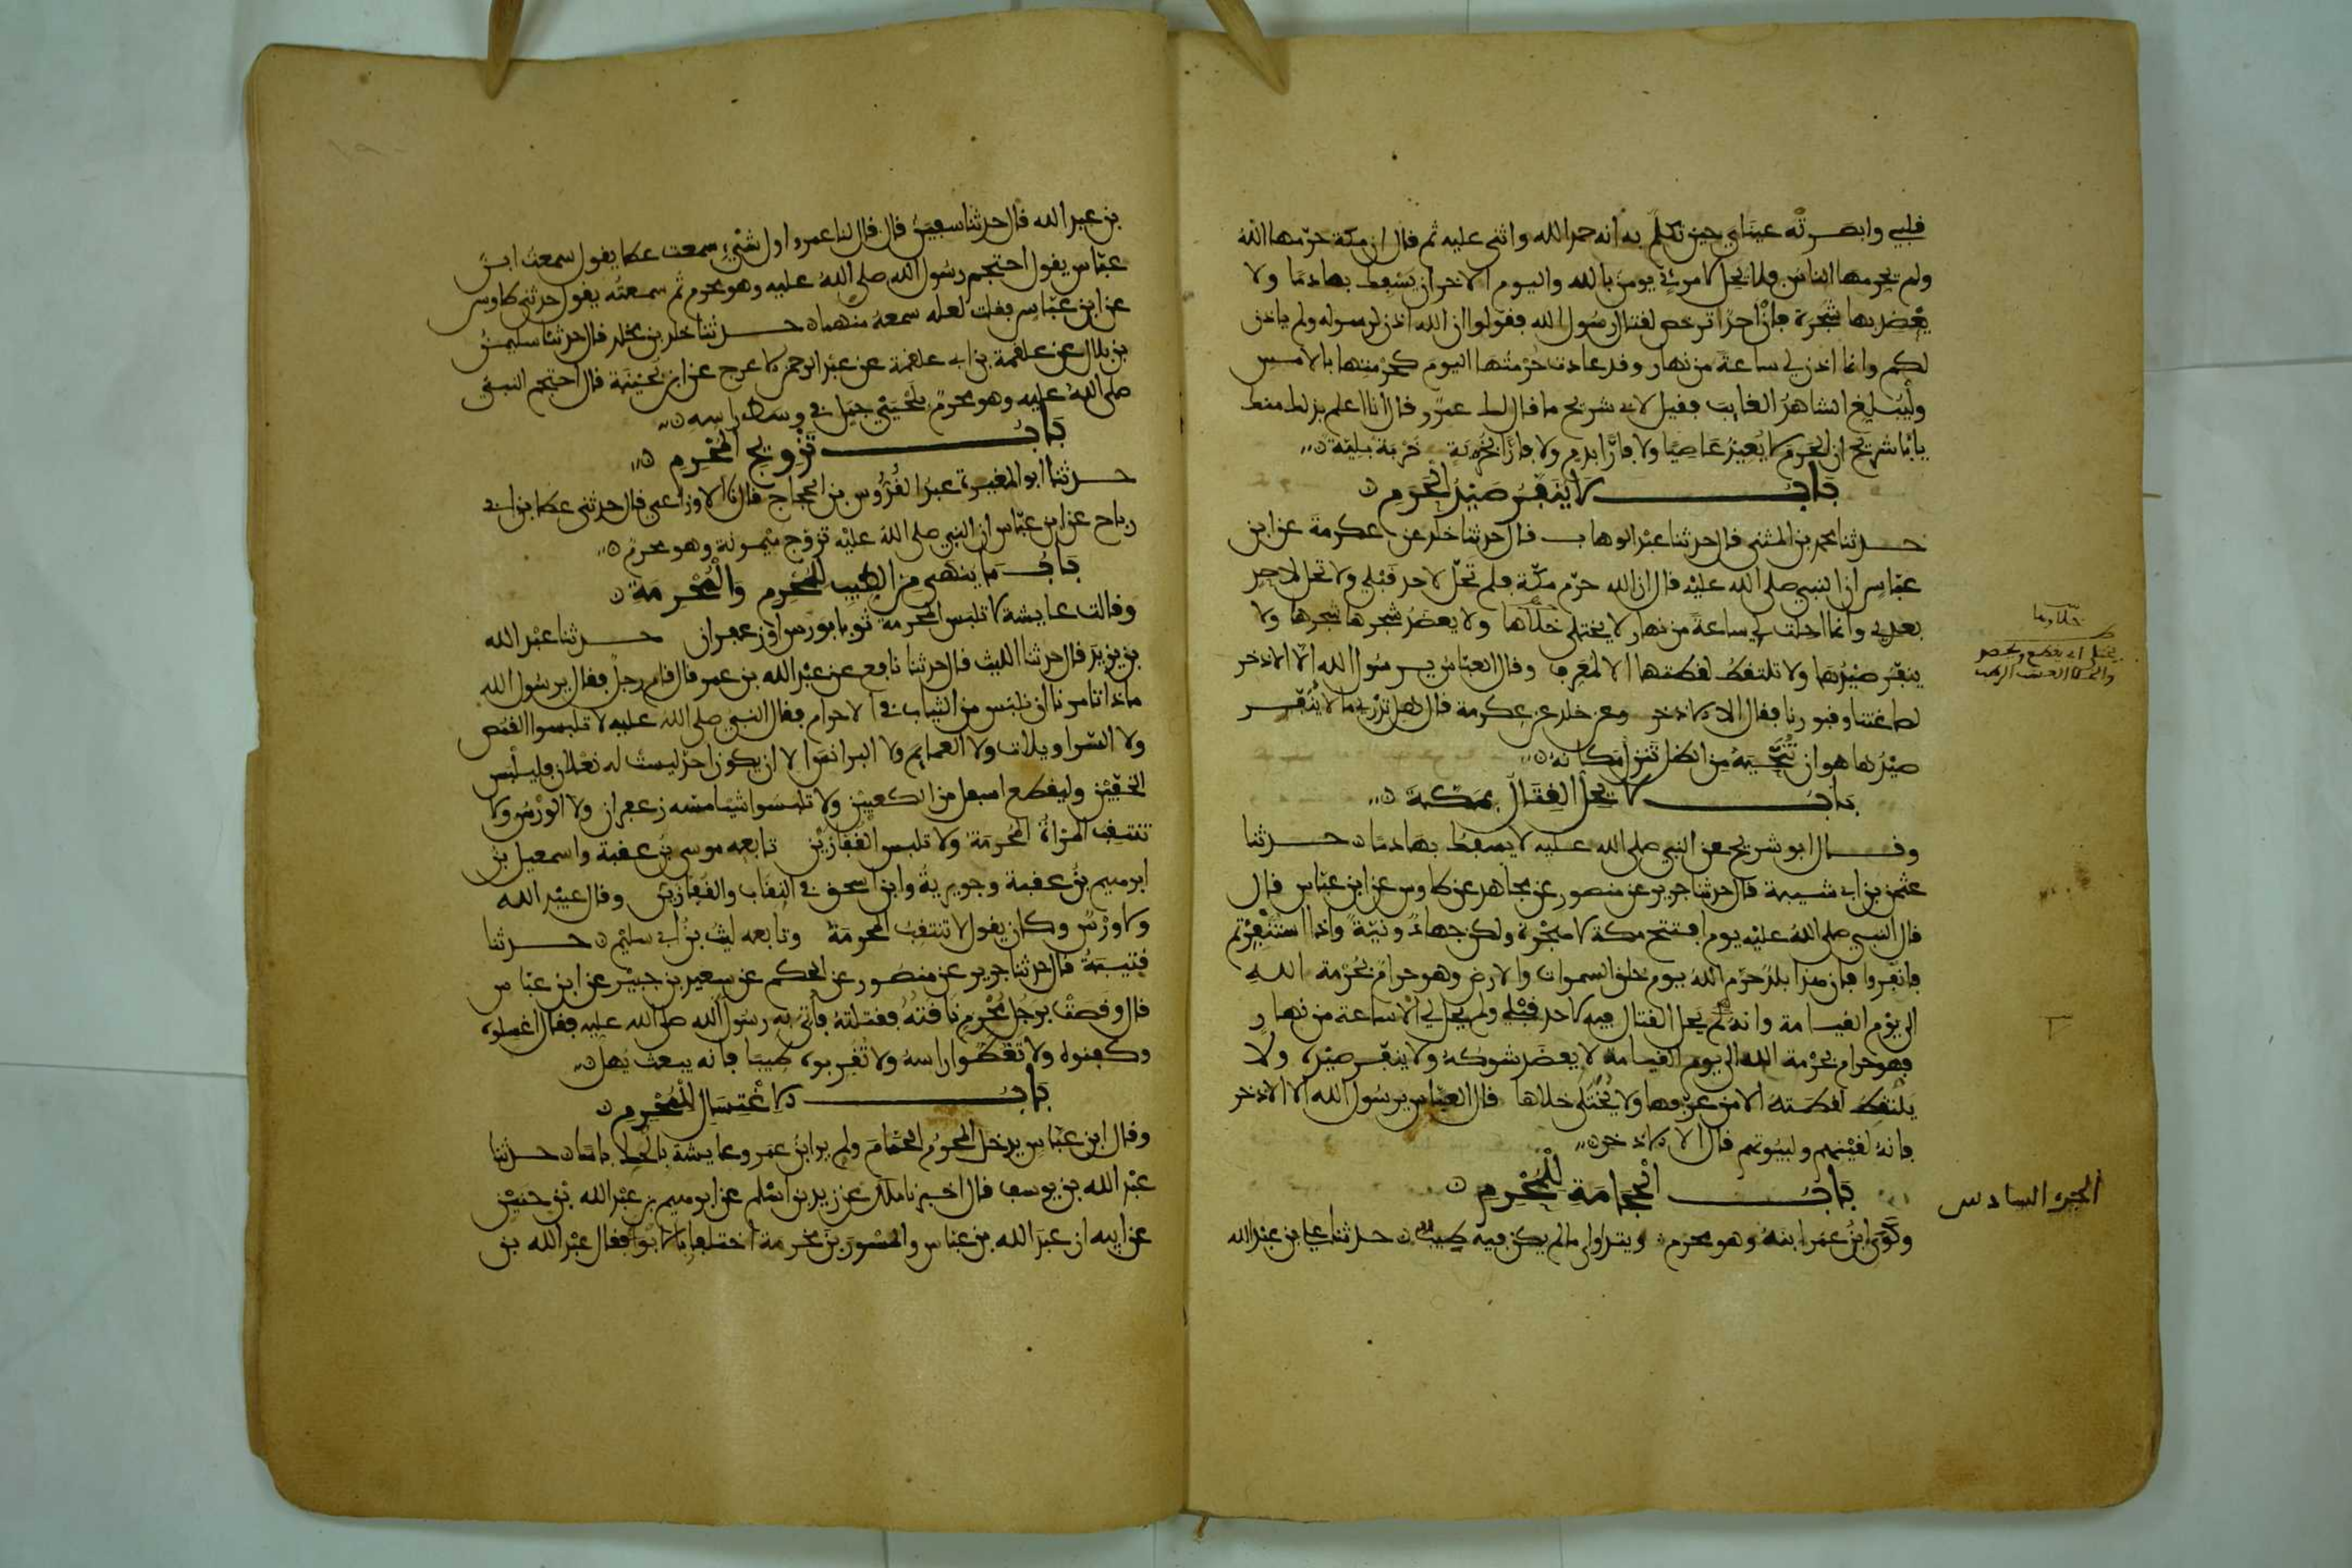 قلبي وابصرته عيناي حين تكلم به انه حمد الله واثنى عليه ثم قال ان مكة حرمها الله
ولم يحرمها الناس فلا يحل لامرئ يومن بالله واليوم الاخر ان يسفك بها دما ولا
يعضد بها شجرة فان احد ترخص لقتال رسول الله فقولوا ان الله اذن لرسوله ولم ياذن
لكم وانما اذن لي ساعة من نهار وقد عادت حرمتها اليوم كحرمتها بالامس
وليبلغ الشاهد الغايب فقيل لابي شريح ما قال لك عمرو قال انا اعلم بذلك منك
يابا شريح ان الحرم لا يعيذ عاصيا ولا فارا بدم ولا فارا بخربة خربة بلية
باب لا ينفر صيد الحرم
حدثنا محمد بن المثنى قال حدثنا عبد الوهاب قال حدثنا خلد عن عكرمة عن ابن
عباس ان النبي صلى الله عليه قال ان الله حرم مكة فلم تحل لاحد قبلي ولا تحل لاحد
بعدي وانما احلت لي ساعة من نهار لا يختلى خلاها ولا يعضد شجرها ولا
ينفر صيدها ولا تلتقط لقطتها الا لمعرف وقال العباس يرسول الله الا الاذخر
لصاغتنا وقبورنا فقال الا الاذخر وعن خلد عن عكرمة قال هل تدري ما لا ينفر
صيدها هو ان تنحيه من الظل تنزل مكانه
باب لا يحل القتال بمكة
وقال ابو شريح عن النبي صلى الله عليه لا يسفك بها دما حدثنا
عثمن بن ابي شيبة قال حدثنا جرير عن منصور عن مجاهد عن طاوس عن ابن عباس قال
قال النبي صلى الله عليه يوم افتتح مكة لا هجرة ولكن جهاد ونية واذا استنفرتم
فانفروا فان هذا بلد حرم الله يوم خلق السموات والارض وهو حرام بحرمة الله
الى يوم القيامة وانه لم يحل القتال فيه لاحد قبلي ولم يحل لي الا ساعة من نهار
فهو حرام بحرمة الله الى يوم القيامة لا يعضد شوكه ولا ينفر صيده ولا
يلتقط لقطته الا من عرفها ولا يختلى خلاها قال العباس يرسول الله الا الاذخر
فانه لقينهم ولبيوتهم قال الا الاذخر
باب الحجامة للمحرم
وكوى ابن عمر ابنه وهو محرم ويتداوى ما لم يكن فيه طيب حدثنا علي بن عبد الله
خلاوها
يختلى اي يقطع ويحصد
الجزء السادس
بن عبد الله قال حدثنا سفين قال قال لنا عمرو اول شيء سمعت عطا يقول سمعت ابن
عباس يقول احتجم رسول الله صلى الله عليه وهو محرم ثم سمعته يقول حدثني طاوس
عن ابن عباس فقلت لعله سمعه منهما حدثنا خلد بن مخلد قال حدثنا سليمن
بن بلال عن علقمة بن ابي علقمة عن عبد الرحمن الاعرج عن ابن بحينة قال احتجم النبي
صلى الله عليه وهو محرم بلحيي جمل في وسط راسه
باب تزويج المحرم
حدثنا ابو المغيرة عبد القدوس بن الحجاج قال نا الاوزاعي قال حدثني عطا بن ابي
رباح عن ابن عباس ان النبي صلى الله عليه تزوج ميمونة وهو محرم
باب ما ينهى من الطيب للمحرم والمحرمة
وقالت عايشة لا تلبس المحرمة ثوبا بورس او زعفران حدثنا عبد الله
بن يزيد قال حدثنا الليث قال حدثنا نافع عن عبد الله بن عمر قال قام رجل فقال يرسول الله
ماذا تامرنا ان نلبس من الثياب في الاحرام فقال النبي صلى الله عليه لا تلبسوا القمص
ولا السراويلات ولا العمايم ولا البرانس الا ان يكون احد ليست له نعلان فليلبس
الخفين وليقطع اسفل من الكعبين ولا تلبسوا شيا مسه زعفران ولا الورس ولا
تنتقب المراة المحرمة ولا تلبس القفازين تابعه موسى بن عقبة واسمعيل بن
ابرهيم بن عقبة وجويرية وابن اسحق في النقاب والقفازين وقال عبيد الله
ولا ورس وكان يقول لا تنتقب المحرمة وتابعه ليث بن ابي سليم حدثنا
قتيبة قال حدثنا جرير عن منصور عن الحكم عن سعيد بن جبير عن ابن عباس
قال وقصت برجل محرم ناقته فقتلته فاتي به رسول الله صلى الله عليه فقال اغسلوه
وكفنوه ولا تغطوا راسه ولا تقربوه طيبا فانه يبعث يهل
باب الاغتسال للمحرم
وقال ابن عباس يدخل المحرم الحمام ولم ير ابن عمر وعايشة بالحك باسا حدثنا
عبد الله بن يوسف قال اخبرنا ملك عن زيد بن اسلم عن ابرهيم بن عبد الله بن حنين
عن ابيه ان عبد الله بن عباس والمسور بن مخرمة اختلفا بالابوا فقال عبد الله بن